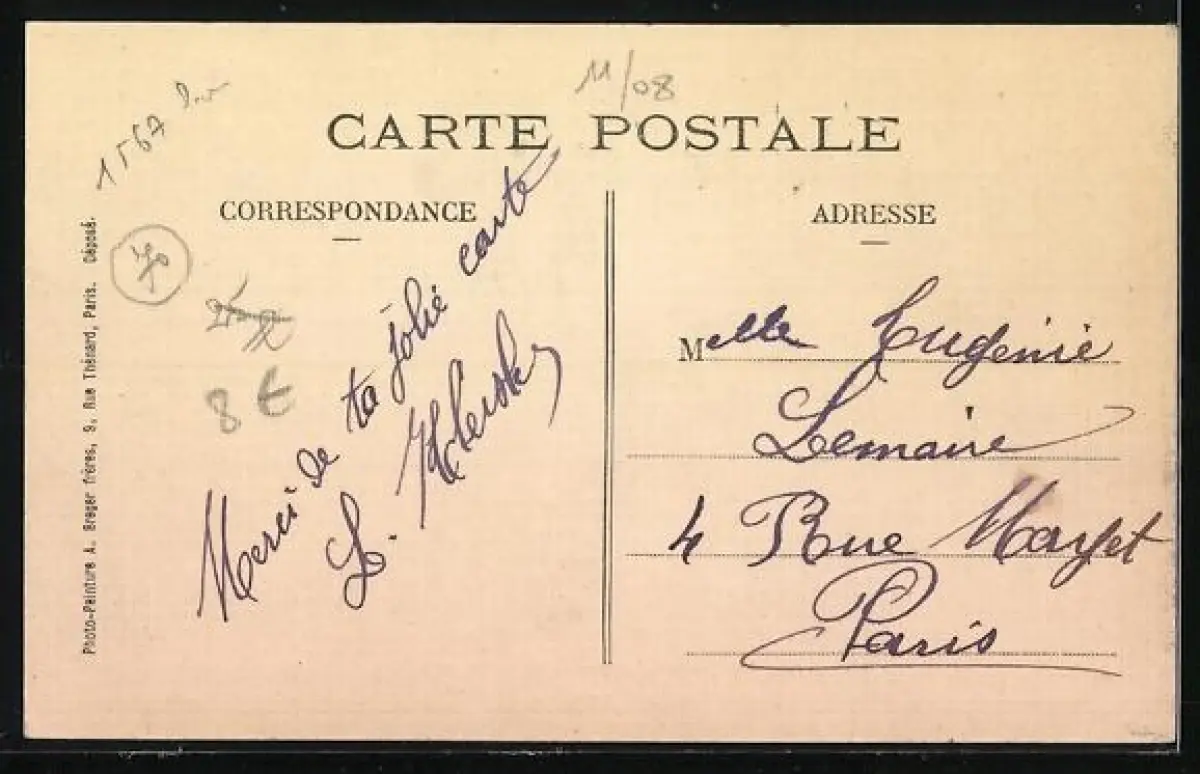 11/08
1567
CARTE POSTALE
CORRESPONDANCE
ADRESSE
Photo-Peinture A. Breger frères, 9, Rue Thénard, Paris. Déposé.
40
8 €
Merci de ta jolie carte
L.
Melle Eugénie
Lemaire
4 Rue Mayet
Paris